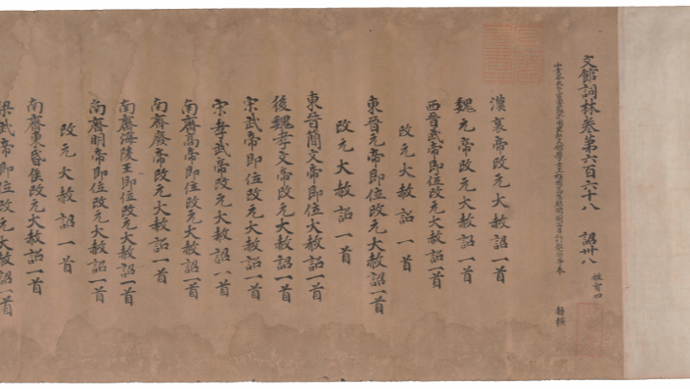 文館詞林卷第六百六十八 詔卅八
赦宥四
勅撰
漢哀帝改元大赦詔一首
魏元帝改元大赦詔一首
西晉武帝即位改元大赦詔一首
改元大赦詔一首
東晉元帝即位改元大赦詔一首
改元大赦詔一首
東晉簡文帝即位大赦詔一首
後魏孝文帝改元大赦詔一首
宋武帝即位改元大赦詔一首
宋孝武帝改元大赦詔一首
南齊高帝即位改元大赦詔一首
南齊廢帝改元大赦詔一首
南齊海陵王即位改元大赦詔一首
南齊明帝即位改元大赦詔一首
改元大赦詔一首
南齊東昏侯改元大赦詔一首
梁武帝即位改元大赦詔一首